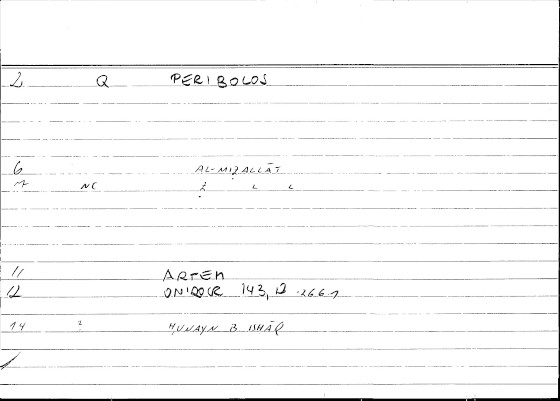 2 Q PERIBOLOS
6 AL-MIẒALLĀT
7 NC Ẓ L L
11 ARTEM
12 ONIROCR 143, 12 .2661
14 2 ḤUNAYN B ISḤĀQ